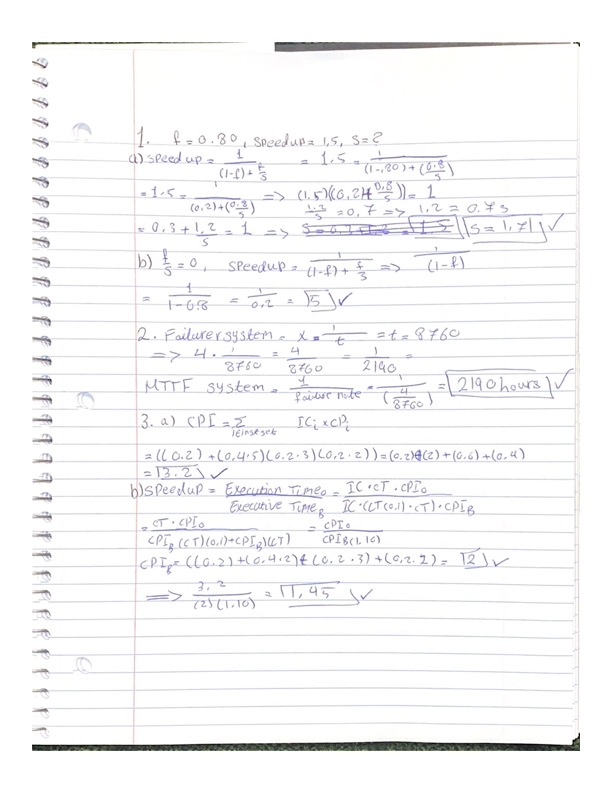 1. f = 0.80, speedup = 1,5, S = ?
a) speedup = 1/((1-f)+f/s) = 1.5 = 1/((1-,80)+(0.8/s))
= 1.5 = 1/((0.2)+(0.8/s)) => (1.5)((0,2)+(0.8/s)) = 1
1.2/s = 0,7 => 1.2 = 0.7s
= 0.3 + 1.2/s = 1 => S = 1,71 ✓
b) f/s = 0, speedup = 1/((1-f)+f/s) => 1/(1-f)
= 1/(1-0.8) = 1/0.2 = 5 ✓
2. Failurer system = x = 1/t = t = 8760
=> 4 · 1/8760 = 4/8760 = 1/2190 =
MTTF system = 1/failur rate = 1/(4/8760) = 2190 hours ✓
3. a) CPI = Σ ICi x CPi
= ((0.2) + (0,4·5)(0.2·3)(0,2·2)) = (0.2)+(2) + (0.6) + (0.4)
= 3.2 ✓
b) speedup = Execution Time₀/Executive Time_B = IC · CT · CPI₀/IC · (CT(0,1) · CT) · CPI_B
= CT · CPI₀/CPI_B (CT)(0,1)+CPI_B)(CT) = CPI₀/CPI_B(1,10)
CPI_B = ((0.2) + (0,4·2) + (0.2·3) + (0,2·2) = 2 ✓
=> 3,2/(2)(1,10) = 1,45 ✓